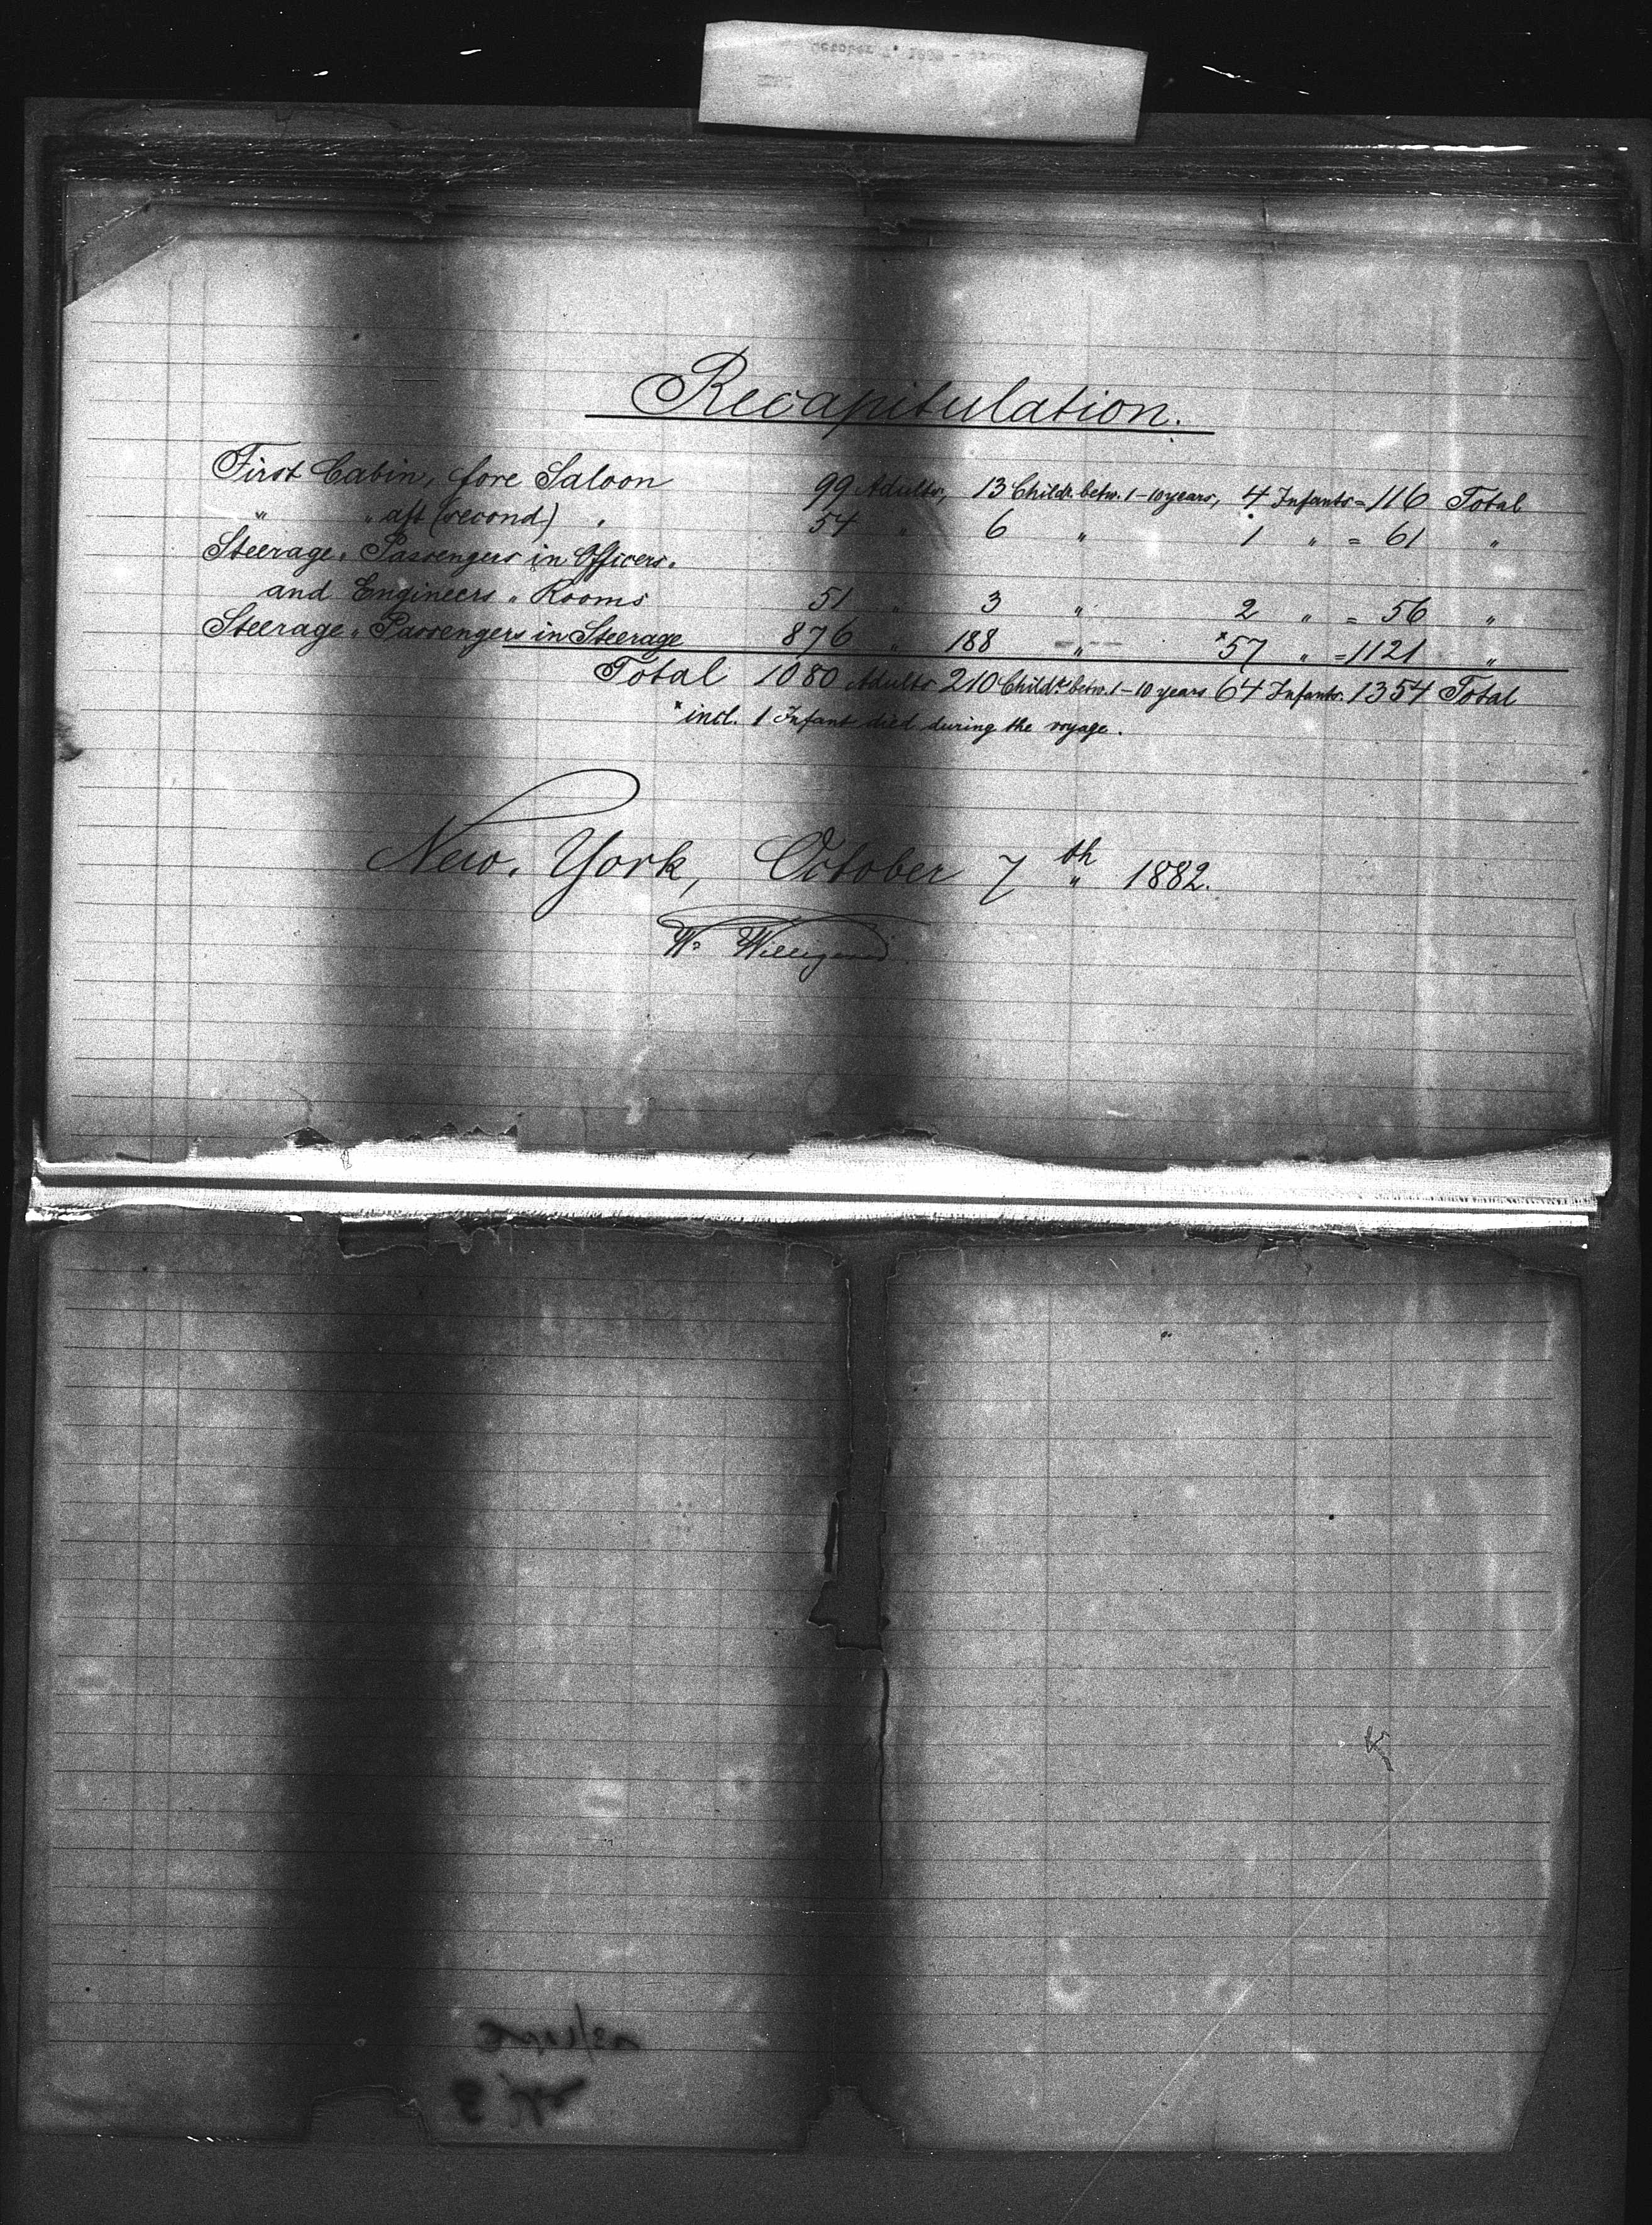 Recapitulation.
First Cabin, fore Saloon 99 Adults, 13 Childr. betw. 1-10 years, 4 Infants = 116 Total
" " aft (second) " 54 " 6 " 1 " = 61 "
Steerage-Passengers in Officers-
and Engineers-Rooms 51 " 3 " 2 " = 56 "
Steerage-Passengers in Steerage 876 " 188 " *57 " = 1121 "
Total 1080 Adults 210 Childr. betw. 1-10 years 64 Infants. 1354 Total
* incl. 1 Infant died during the voyage.
New-York, October 7th 1882.
W. Willigerod